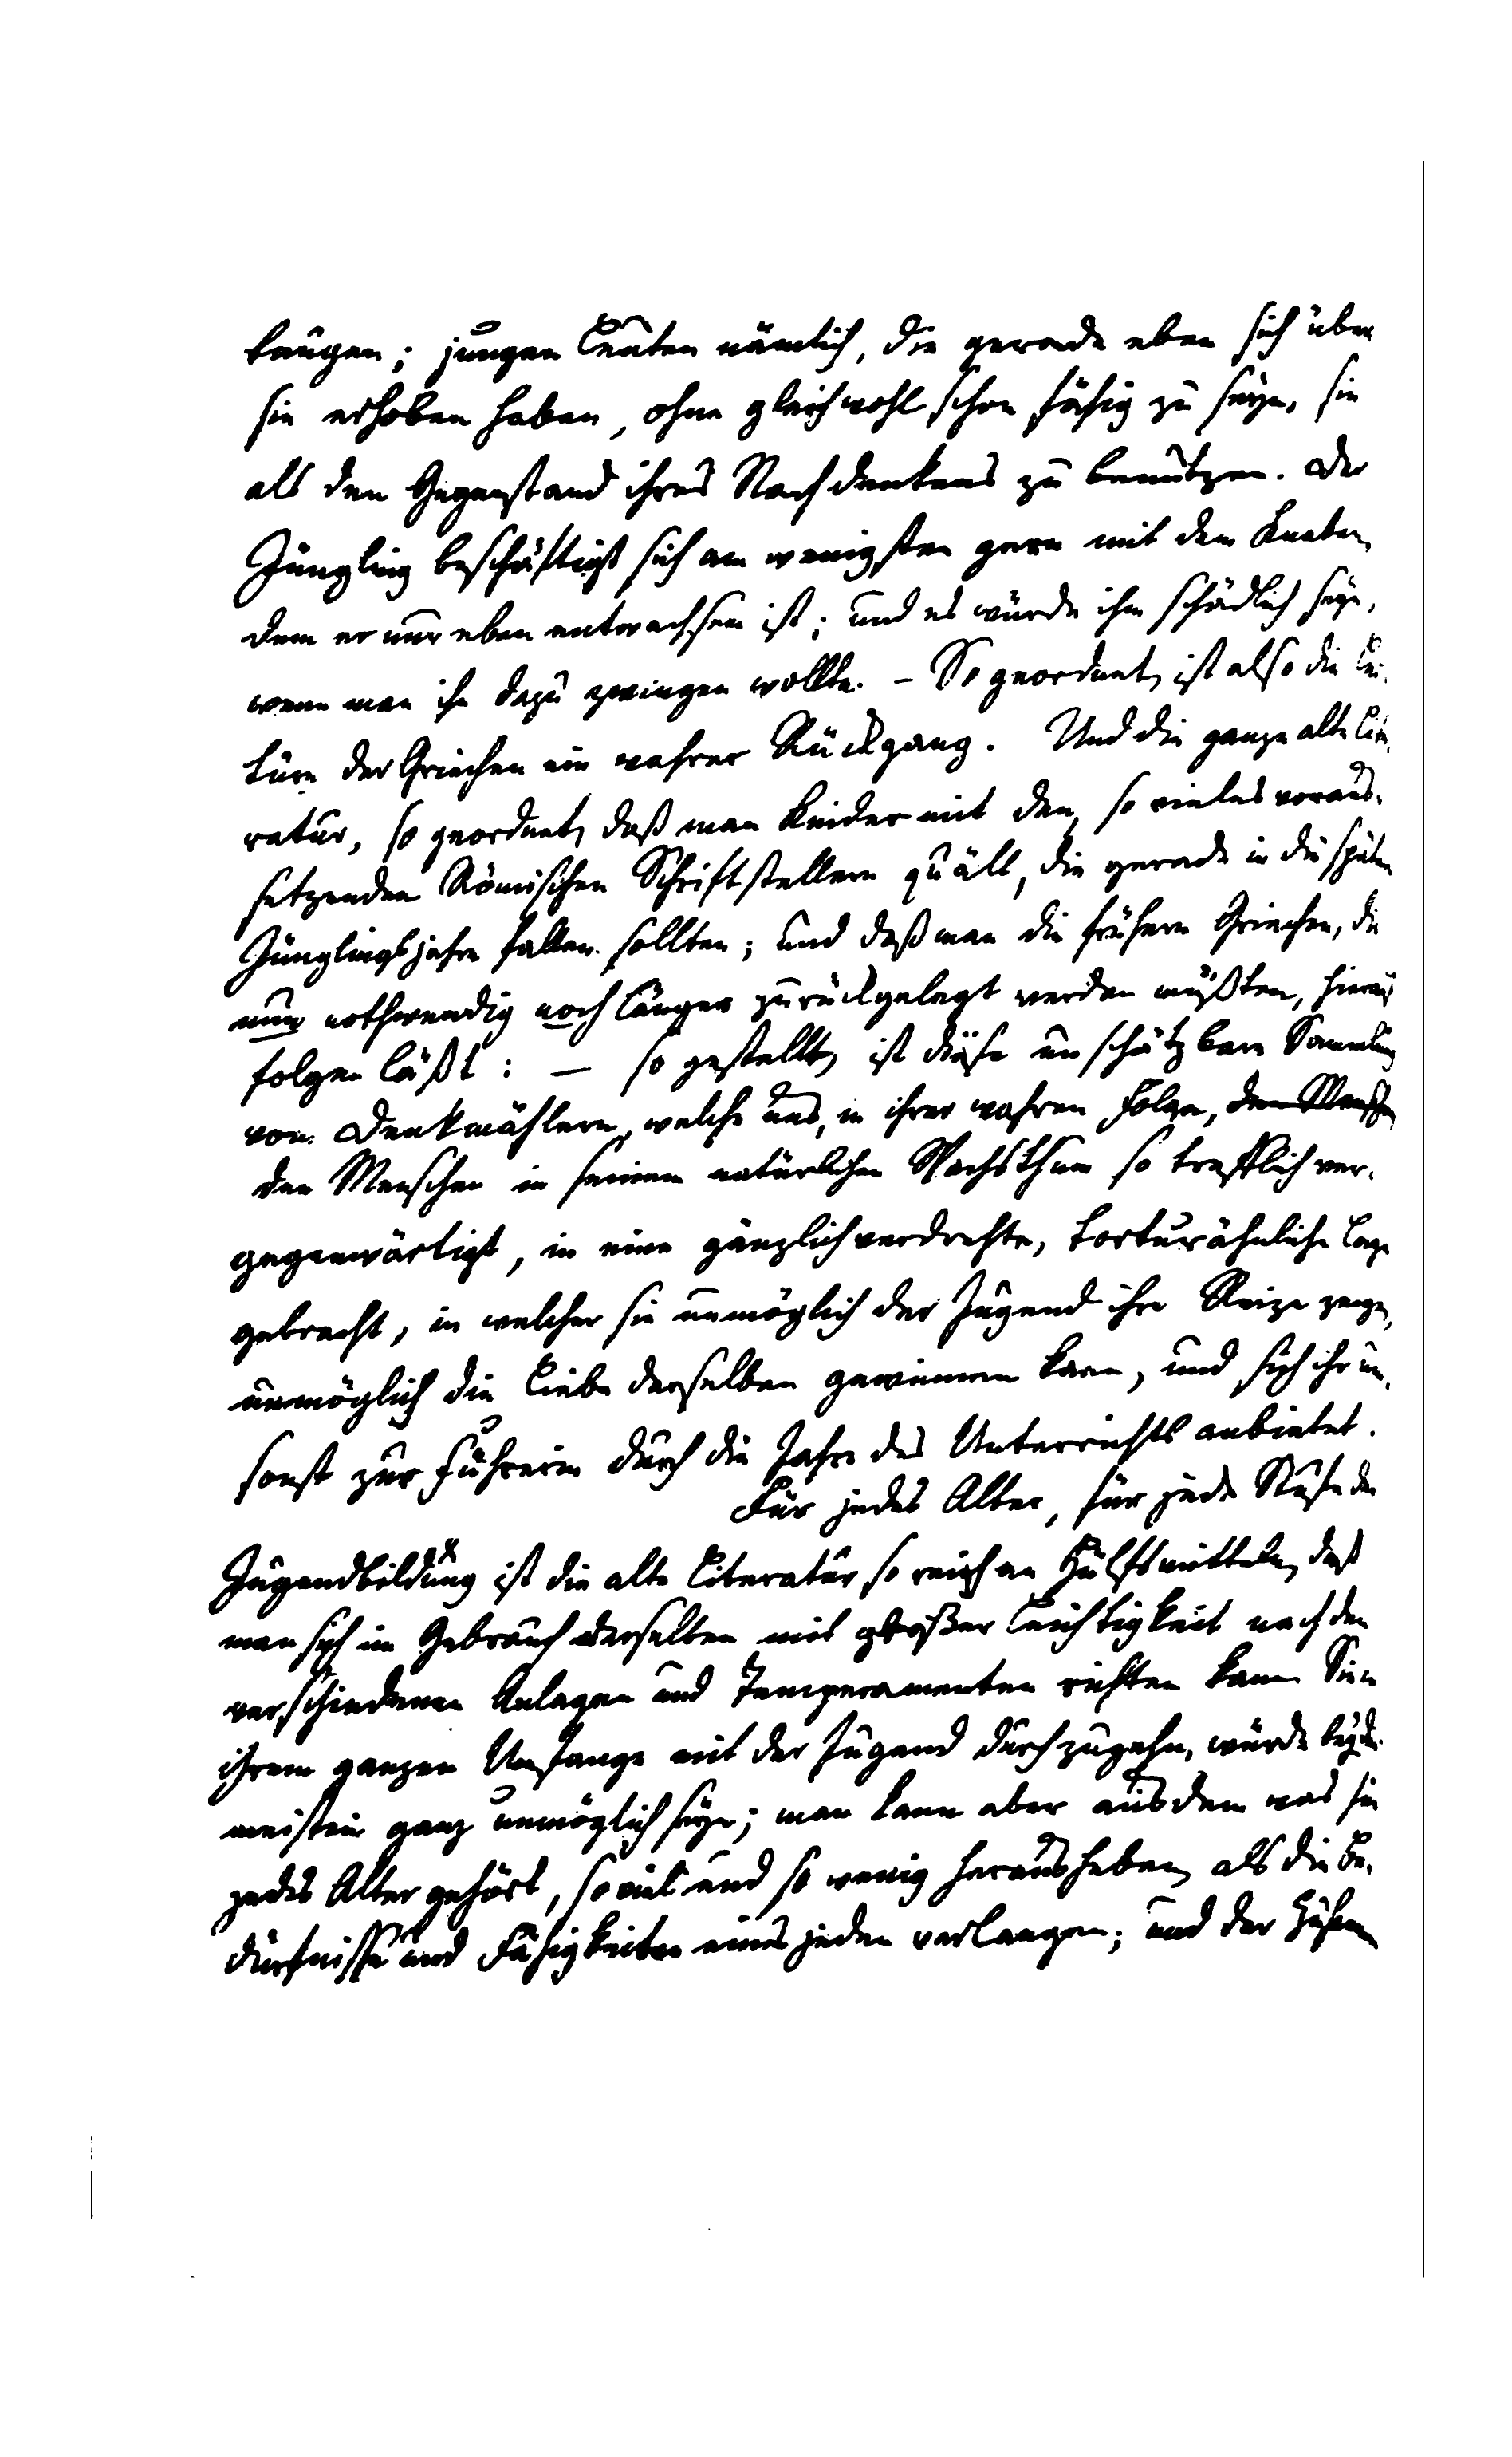 taugen; jungen Leuten nämlich, die gerade eben sich über
sie erhoben haben, ohne gleichwohl schon fähig zu seyn, sie
als den Gegenstand ihres Nachdenkens zu benutzen. Der
Jüngling beschäftigt sich am wenigsten gern mit dem Knaben,
dem er nur eben entwachsen ist; und es würde ihm schädlich seyn,
wenn man ihn dazu zwingen wollte. – So geordnet, ist also die Lek-
türe der Griechen ein wahrer Rückgang. Und die ganze alte Lite-
ratur, so geordnet, daß man Kinder mit den, so vieles voraus-
setzenden Römischen Schriftstellern quält, die gerade in die spätern
Jünglingsjahre fallen sollten; und daß man die frühern Griechen, die
nun nothwendig noch länger zurückgelegt werden müßten, hierauf
folgen läßt: — so gestellt, ist diese unschätzbare Sammlung
von Denkmählern, welche uns, in ihrer wahren Folge, den Menschen
den Menschen in seinem natürlichen Wachsthum so trefflich ver-
gegenwärtigt, in eine gänzlich verdrehte, torturähnliche Lage
gebracht, in welcher sie unmöglich der Jugend ihre Reize zeigen,
unmöglich die Liebe derselben gewinnen kann, und sich ihr um-
sonst zur Führerin durch die Jahre des Unterrichts anbietet.
Für jedes Alter, für jede Stufe der
Jugendbildung ist die alte Literatur so reich an Hülfsmitteln, daß
man sich im Gebrauch derselben mit großer Leichtigkeit nach den
verschiedenen Anlagen und Temperamenten richten kann. Sie in
ihrem ganzen Umfange mit der Jugend durchzugehn, würde bey den
meisten ganz unmöglich seyn; man kann aber aus dem was für
jedes Alter gehört, so viel und so wenig herausheben, als die Be-
dürfnisse und Fähigkeiten eines jeden verlangen; und der